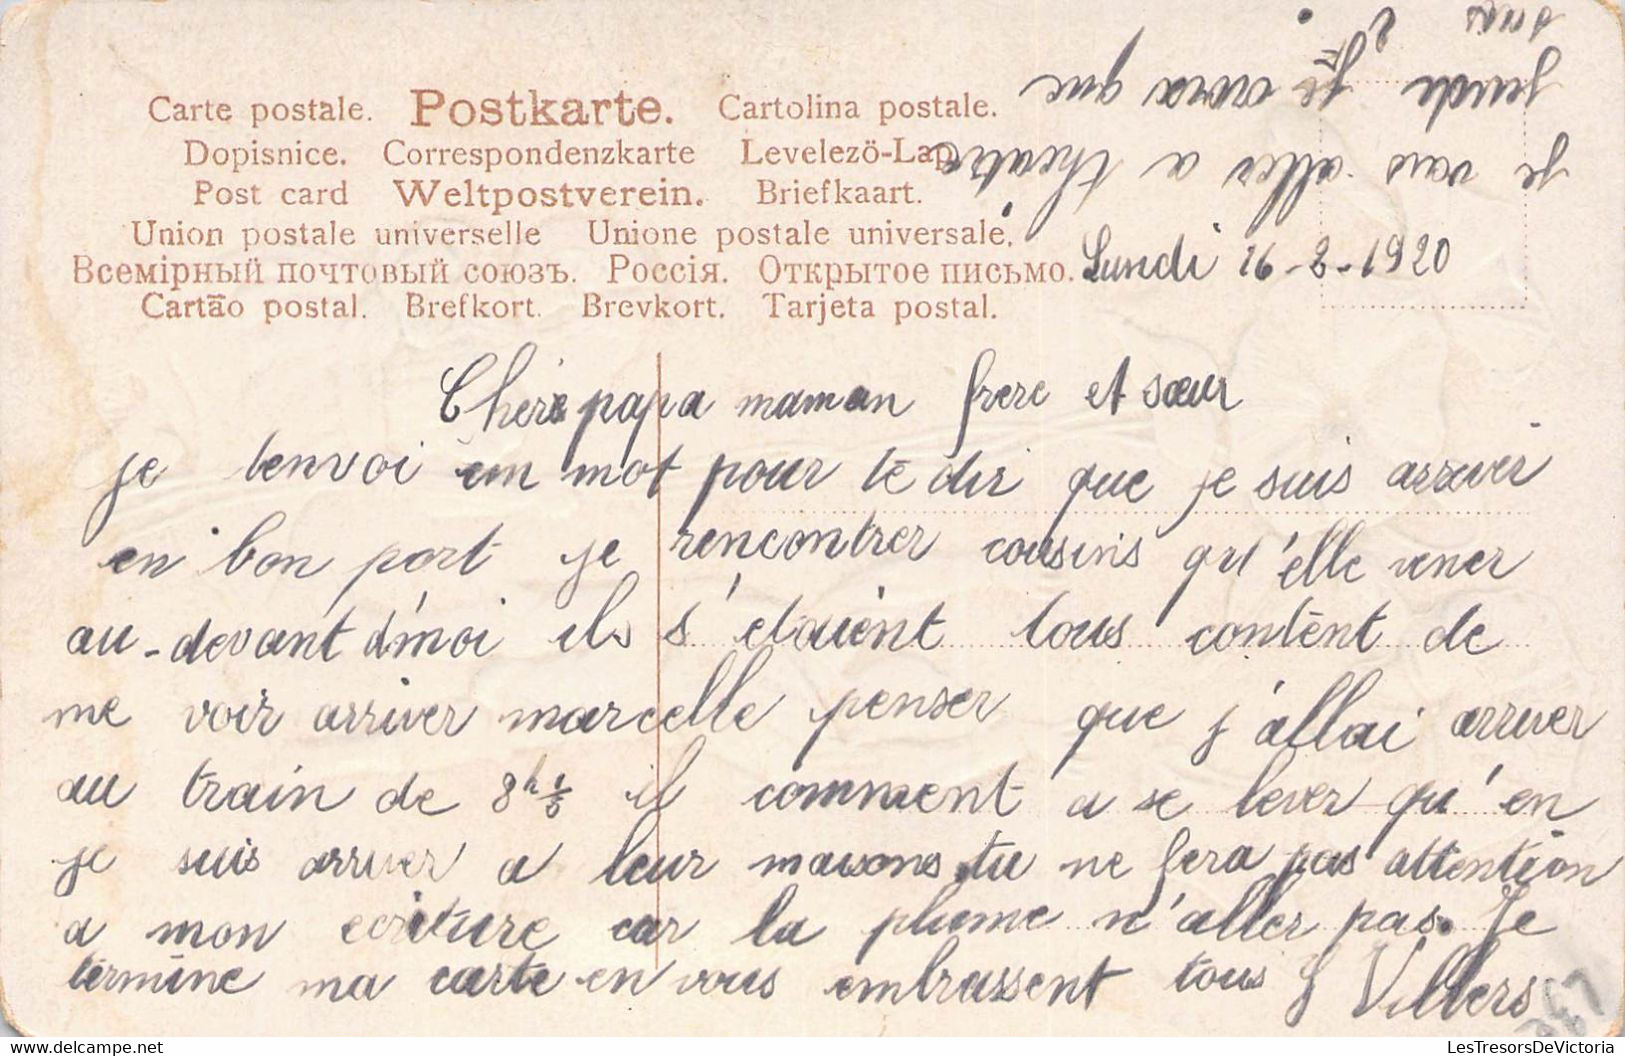 Carte postale. Postkarte. Cartolina postale.
Dopisnice. Correspondenzkarte Levelezö-Lap.
Post card Weltpostverein. Briefkaart.
Union postale universelle Unione postale universale.
Всемірный почтовый союзъ. Россія. Открытое письмо.
Cartão postal. Brefkort. Brevkort. Tarjeta postal.
Lundi 16-2-1920
Chère papa maman frere et sœur
je tenvoi un mot pour te dir que je suis arriver
en bon port je rencontrer cousins qu'elle vener
au-devant d'moi ils s'etaient tous contènt de
me voir arriver marcelle penser que j'allai arriver
au train de 8h ½ il comment a se lever qu'en
je suis arriver a leur maisons tu ne fera pas attention
a mon ecriture car la plume n'aller pas. Je
termine ma carte en vous embrassent tous J Villers
je vais aller a theatre
jeudi Je crois que
367
LesTresorsDeVictoria